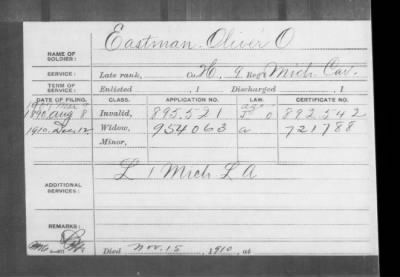 Eastman Oliver O
NAME OF SOLDIER:
SERVICE: Late rank, Co. H, 9 Reg't Mich. Cav.
TERM OF SERVICE: Enlisted , 1 Discharged , 1
DATE OF FILING. CLASS. APPLICATION NO. LAW. CERTIFICATE NO.
1890 Aug 8 Invalid, 895.521 892.542
1910. Widow, 954063 a 721788
Minor,
L 1 Mich L A
ADDITIONAL SERVICES:
REMARKS:
Died Nov. 15, 1910, at